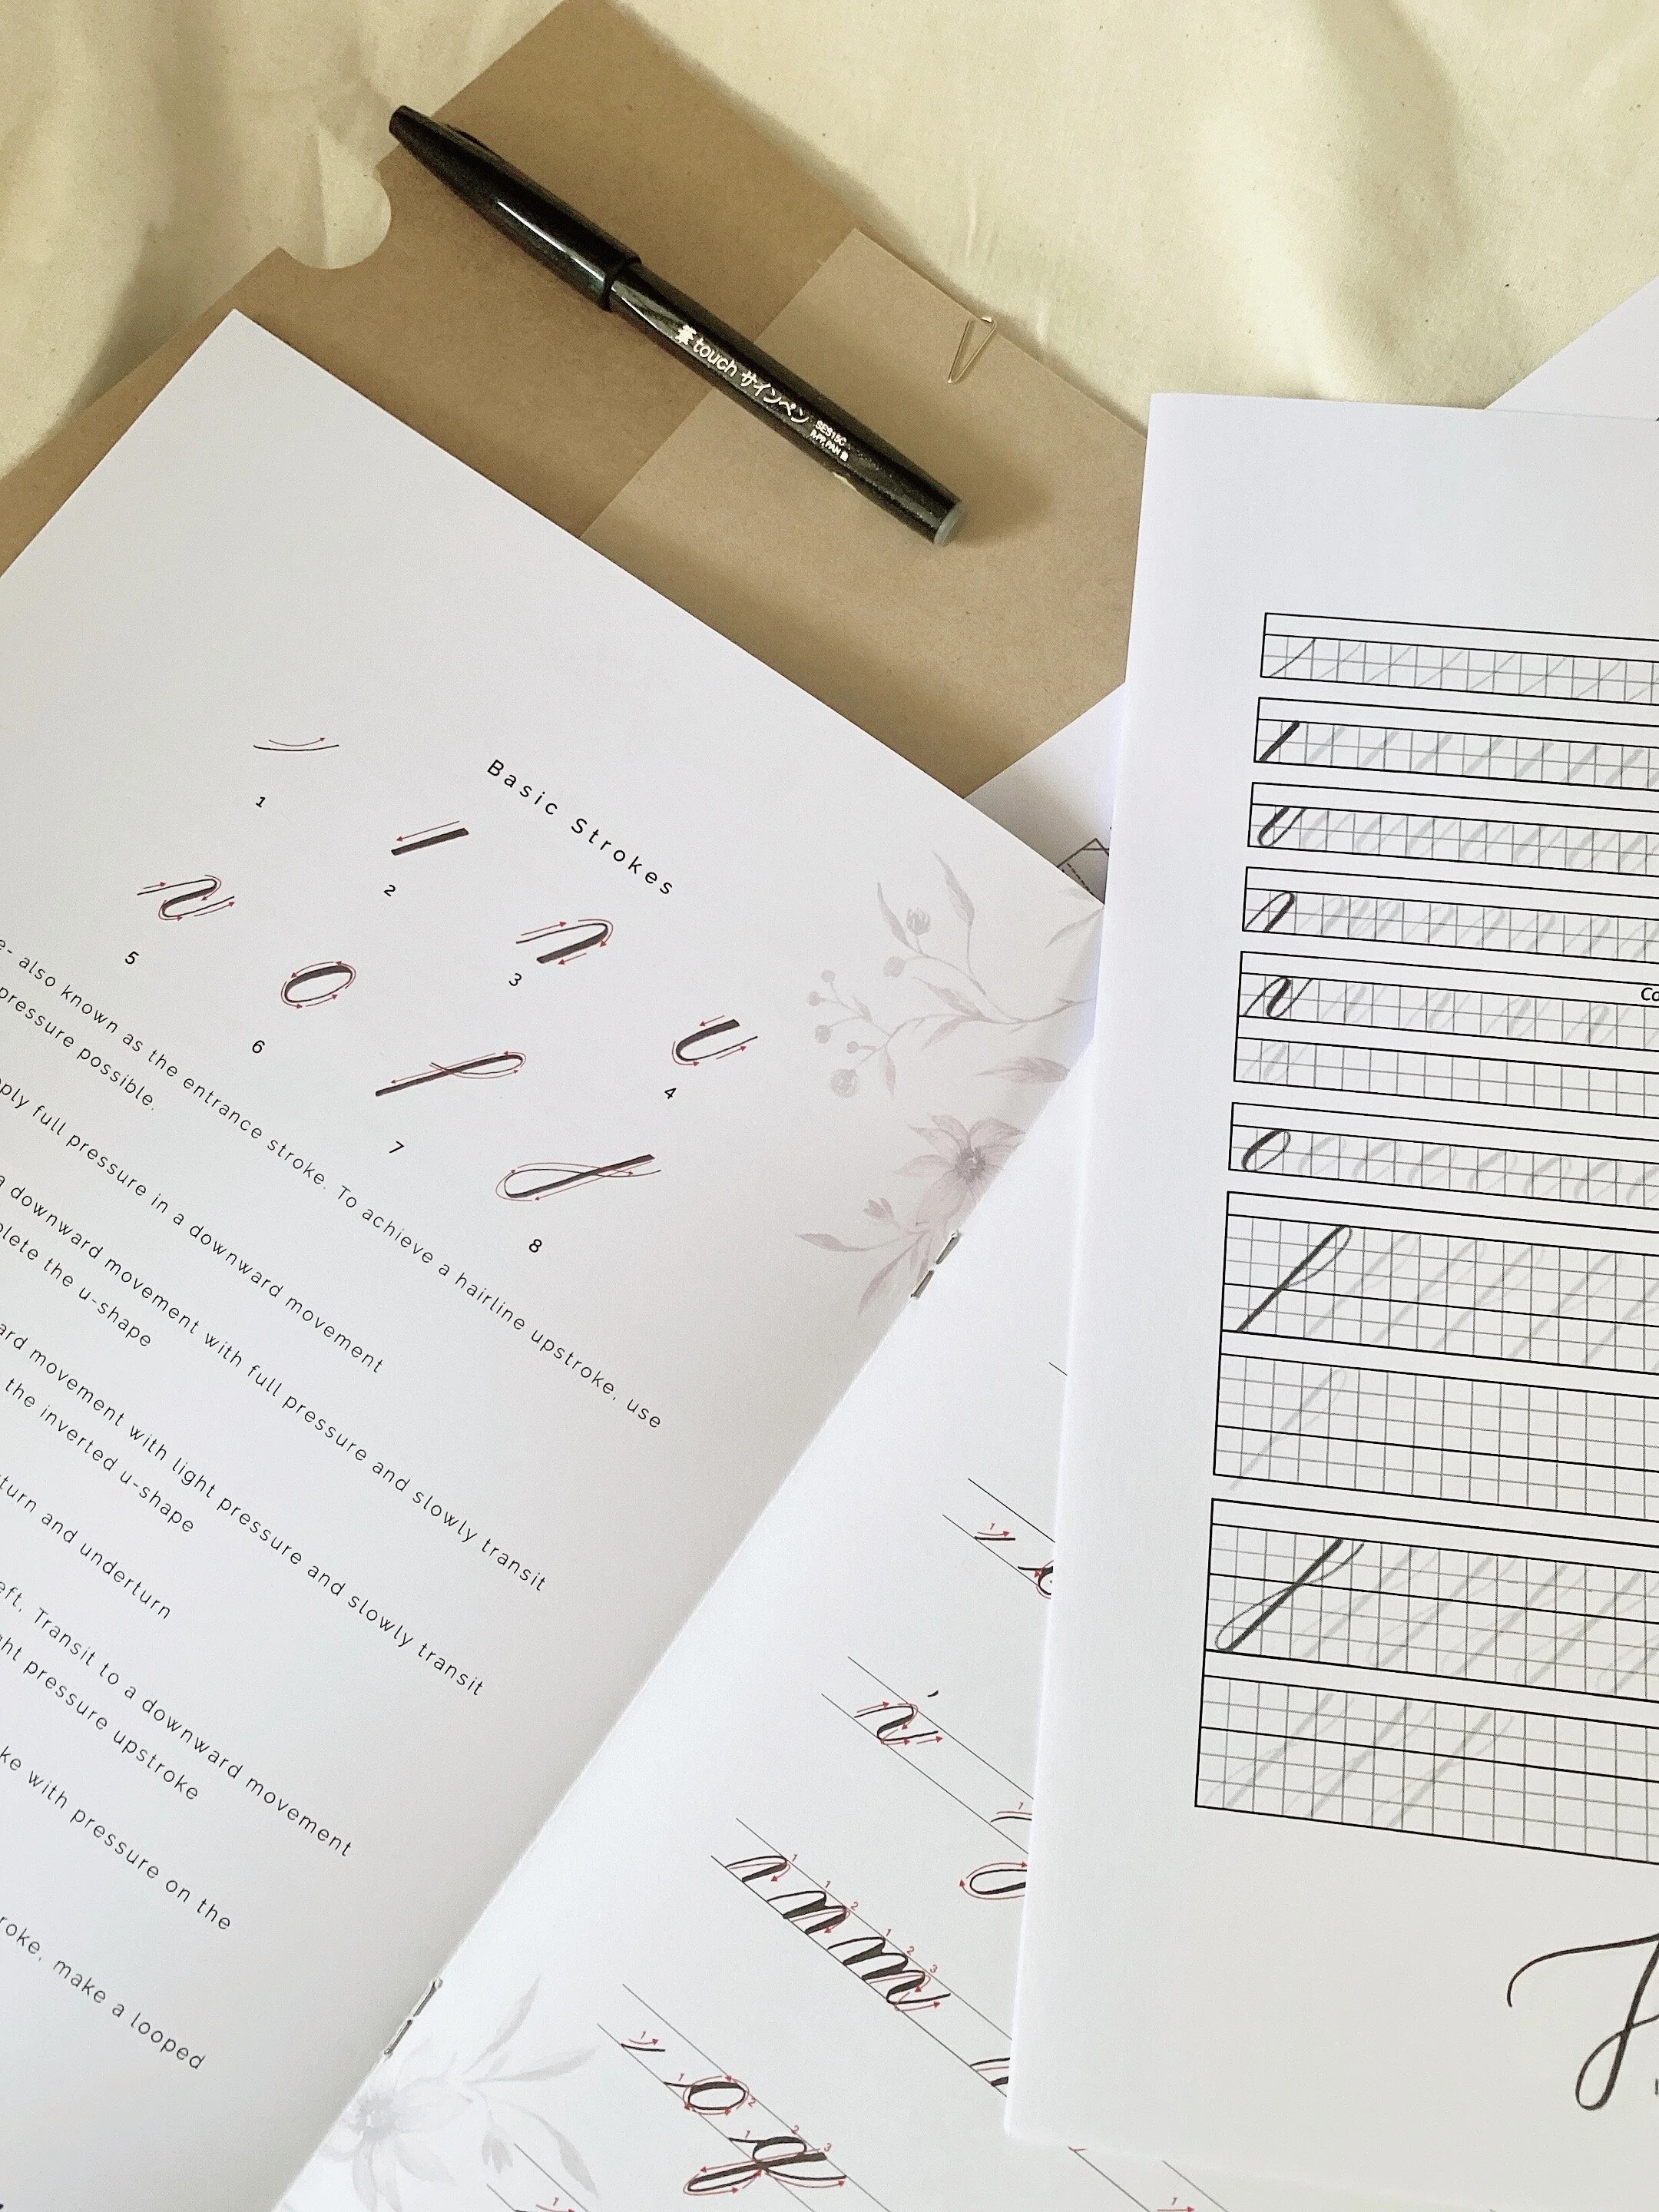 筆touch サインペン
SES15C
Basic Strokes
1
2
3
4
5
6
7
8
also known as the entrance stroke. To achieve a hairline upstroke, use
pressure possible.
full pressure in a downward movement
a downward movement with full pressure and slowly transit
the u-shape
movement with light pressure and slowly transit
the inverted u-shape
and underturn
Transit to a downward movement
pressure upstroke
with pressure on the
make a looped
1
i
1
1
1
2
1
2
3
1
1
2
1
2
3
1
1